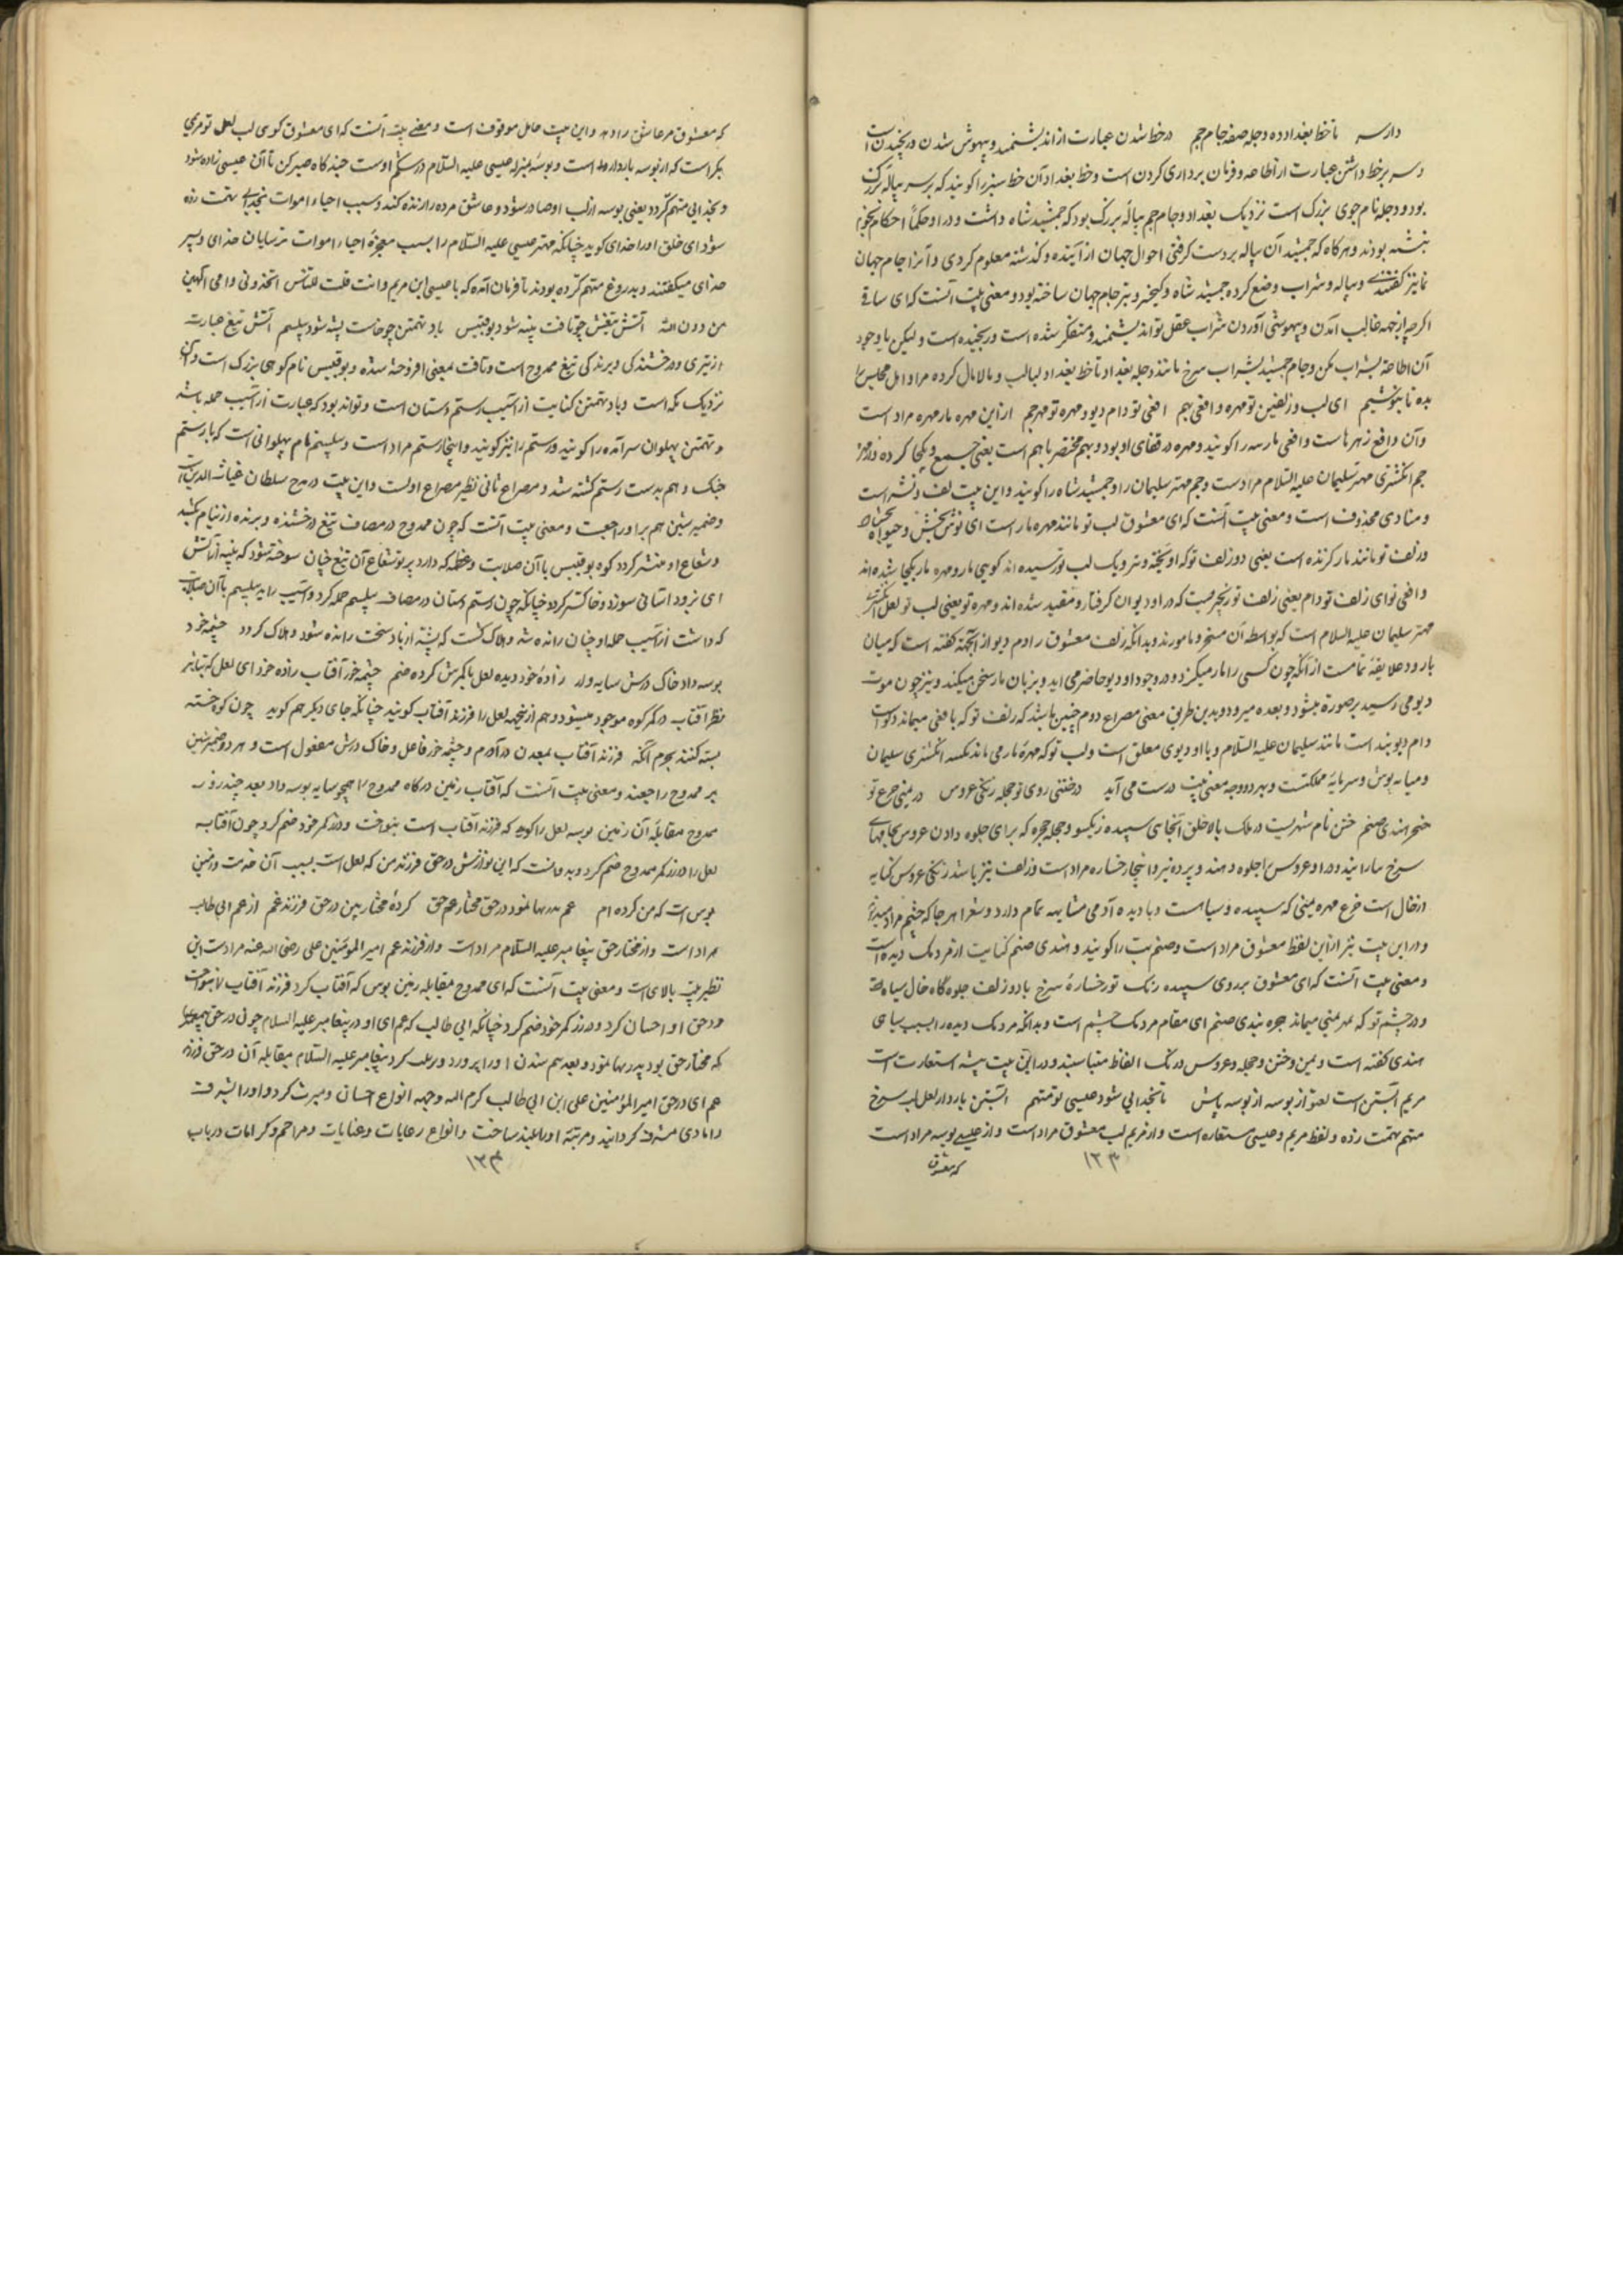 دارسہ تا خط بغداد ده دجله صفه جام جم در خط شدن عبارت از اندیشمند و بیهوش شدن و رنجیدن است
و سر بر خط داشتن عبارت از اطاعه و فرمان برداری کردن است و خط بغداد آن خط سبز را کویند که بر سر پیاله بزرک
بود و دجله نام جوی بزرک است نزدیک بغداد و جام جم پیالهٔ بزرک بود که جمشید شاه داشت و در او حکما احکام نجوم
نبشته بودند و هر کاه که جمشید آن پیاله بر دست کرفتی احوال جهان از آینده و کذشته معلوم کردی و آنرا جام جهان
نمای نیز کفتندے و پیاله و شراب وضع کرده جمشید شاه و کیخسرو نیز جام جهان ساخته بود و معنی بیت آنست که ای ساقے
اکرچه از جهه غالب آمدن و بیهوشی آوردن شراب عقل تو اندیشمند و متفکر شده است و رنجیده است و لیکن با وجود
آن اطاعه بشراب کن و جام جمشید بشراب سرخ مانند دجله بغداد تا خط بغداد لبالب و مالامال کرده مر اهل مجلس را
بده تا بنوشیم ای لب و زلفین تو مهره و افعی بهم افعی تو دام دیو مهره تو مهر جم از این مهره مار مهره مراد است
و آن دافع زهرهاست و افعی مار سه را کویند و مهره در قفای او بود و بهم مختصر باهم است یعنی جمع و یکجا کرده و از مهر
جم انکشتری مهتر سلیمان علیه السلام مراد است و جم مهتر سلیمان را و جمشید شاه را کویند و این بیت لف و نشر است
و منادی محذوف است و معنی بیت آنست که ای معشوق لب تو مانند مهره مار است ای نوش بخش و حیوة بخش
و زلف تو مانند مار کزنده است یعنی دو زلف تو که آویخته و نزدیک لب تو رسیده اند کوهی مار و مهره مار یکجا شده اند
و افعی تو ای زلف تو دام یعنی زلف تو زنجیریست که در او دیوان کرفتار و مقید شده اند و مهره تو یعنی لب تو لعل انکشتری
مهتر سلیمان علیه السلام است که بواسطه آن مسخر و مامورند و بدانکه زلف معشوق را دام دیو از آنجهة کفته است که میان
مار و دیو علاقهٔ تمامست از آنکه چون کسی را مار میکزد و در وجود او دیو حاضر می آید و بزبان مار سخن میکند و نیز چون موت
دیو می رسید بر صورة میشود و بعده میرود و بدین طریق معنی مصراع دوم چنین باشد که زلف تو که بافعی میماند دلهاست
دام دیو بند است مانند سلیمان علیه السلام و با او دیوی معلق است و لب تو که مهرهٔ مار می ماند نکسه انکشتری سلیمان
و میانه پوش و سرمایه مملکتست و بهر دو وجه معنی بیت درست می آید در ختنی روی تو حجله زنکی عروس در یمنی جزع تو
حجر هندی صنم ختن نام شهریست در ملک بالا خلق آنجای سپیده و نیکو و حجله حجره که برای جلوه دادن عروس بجامهای
سرخ بیارایند و در او عروس را جلوه دهند و پرده نیز و اینجا رخساره مراد است و زلف نیز باشد زنکی عروس کنایه
از خال است جزع مهره یمنی که سپیده و سیاهست و با دیده آدمی مشابهه تمام دارد و شعرا هر جا که چشم مراد میدارند
و در این بیت نیز از این لفظ معشوق مراد است و صنم بت را کویند و هندی صنم کنایت از مردمک دیده است
و معنی بیت آنست که ای معشوق بر روی سپیده رنک تو رخسارهٔ سرخ با دو زلف جلوه گاه خال سیاه است
و در چشم تو که بمهر یمنی میماند حجره هندی صنم ای مقام مردمک چشم است و بدانکه مردمک دیده را بسبب سیاهی
هندی کفته است و یمن و ختن و حجله و عروس و رنک الفاظ متناسبند و در این بیت بیشه استعارت است
مریم آبستن است لعل تو از بوسه پاش تا بخدایی شود عیسی تو متهم آبستن باردار لعل لب سرخ
متهم تهمت زده و لفظ مریم و عیسی مستعاره است و از مریم لب معشوق مراد است و از عیسے بوسه مراد است
۱۳۳
که معشوق
که معشوق مر عاشق را دهد و این بیت حامل موقوف است و معنے بیت آنست که ای معشوق کوی لب لعل تو مریم
بکر است که از بوسه باردار شد است و بوسه بمنزله عیسی علیه السلام در شکم اوست چند کاه صبر کن تا آن عیسی زاده شود
و بخدایی متهم کردد یعنی بوسه از لب او صادر شود و عاشق مرده را زنده کند و بسبب احیاء اموات بخدایے تهمت زده
شود ای خلق او را خدای کوید چنانکه مهتر عیسی علیه السلام را بسبب معجزهٔ احیاء اموات ترسایان خدای و پسر
خدای میکفتند و بدروغ متهم کرده بودند تا فرمان آمد که یا عیسی ابن مریم ءانت قلت للناس اتخذونی و امی الهین
من دون الله آتش تیغش چو تافت پنبه شود بوقبیس باد تهمتن چو خاست پشه شود پیلسم آتش تیغ عبارت
از تیزی و درخشندکی و برندکی تیغ ممدوح است و تافت بمعنی افروخته شده و بوقبیس نام کوهی بزرک است و آن
نزدیک مکه است و باد تهمتن کنایت از آسیب رستم دستان است و تواند بود که عبارت از آسیب حمله باشد
و تهمتن پهلوان سرآمده را کویند و رستم را نیز کویند و اینجا رستم مراد است و پیلسم نام پهلوانی است که با رستم
جنک و هم بدست رستم کشته شد و مصراع ثانی نظیر مصراع اولست و این بیت در مدح سلطان غیاث الدین است
و ضمیر شین هم برا و راجعست و معنی بیت آنست که چون ممدوح در مصاف تیغ درخشنده و برنده از نیام بکشد
و شعاع او منتشر کردد کوه بوقبیس با آن صلابت و عظمه که دارد پرتو شعاع آن تیغ چنان سوخته شود که پنبه از آتش
ای بزود آسانی سوزد و خاکستر کردد چنانکه چون رستم دستان در مصاف پیلسم حمله کرد و آسیب رسانید پیلسم با آن صلابت
که داشت از آسیب حمله او چنان رانده شد و هلاک کشت که پشه از باد سخت رانده شود و هلاک کردد چشمه خود
بوسه داد خاک درش سایه وار زادهٔ خود دیده لعل با کمرش کرده ضم چشمه خور آفتاب زاده خود ای لعل که بتاثیر
نظر آفتاب در کمر کوه موجود میشود و هم از اینجهه لعل را فرزند آفتاب کویند چنانکه جای دیکر هم کوید چون کو خسته
بسته کنند بجرم آنکه فرزند آفتاب بمعدن در آورم و چشمه خور فاعل و خاک درش مفعول است و هر دو ضمیر شین
بر ممدوح راجعند و معنی بیت آنست که آفتاب زمین درکاه ممدوح را همچو سایه بوسه داد بعد چند روز
ممدوح مقابلهٔ آن زمین بوسه لعل را کوید که فرزند آفتاب است بنواخت و در کمر خود ضم کرد چون آفتاب
لعل را در کمر ممدوح ضم کرد و بدانست که این نوازش در حق فرزند من که لعل است بسبب آن خدمت و زمین
بوس است که من کرده ام عم پدریها نمود در حق مختار حق کردهٔ مختار بین در حق فرزند عم از عم ابی طالب
مراد است و از مختار حق پیغامبر علیه السلام مراد است و از فرزند عم امیر المومنین علی رضی الله عنه مراد است این
نظیر بیت بالای است و معنی بیت آنست که ای ممدوح مقابله زمین بوس که آفتاب کرد فرزند آفتاب را بنواخت
و در حق او احسان کرد و در کمر خود ضم کرد چنانکه ابی طالب که عم ای اودر پیغامبر علیه السلام چون در حق پیغامبر
که مختار حق بود پدریها نمود و بعد هم شدن او را پرورد و بزرک کرد پیغامبر علیه السلام مقابله آن در حق فرزند
عم ای در حق امیر المؤمنین علی ابن ابی طالب کرم الله وجهه انواع احسان و مبرت کرد و او را بشرف
دامادی مشرف کردانید و مرتبهٔ او را بلند ساخت و انواع رعایات و عنایات و مراحم و کرامات در باب
۱۳۴